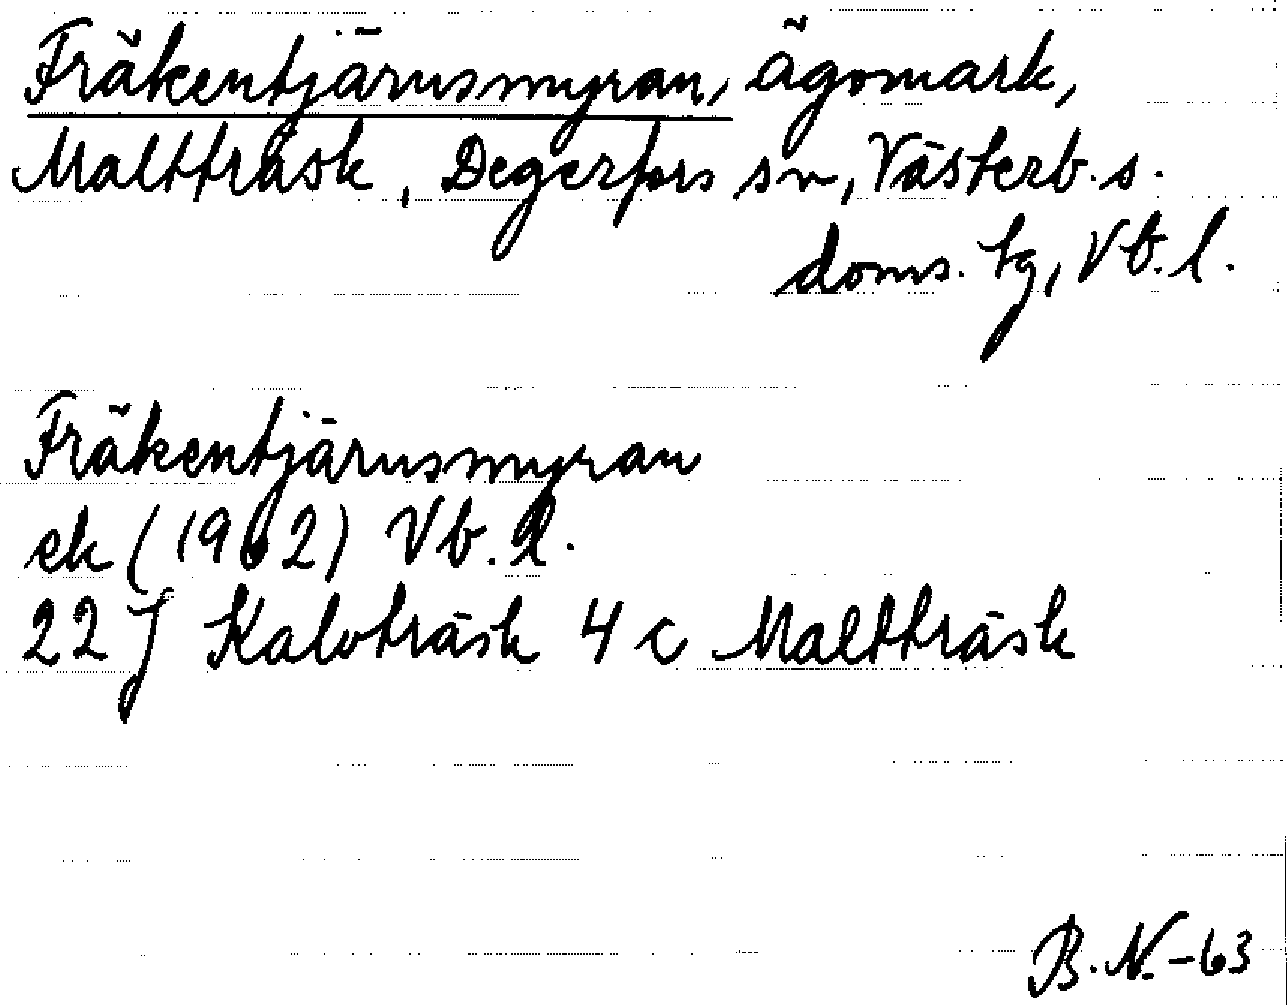 Fräkentjärnsmyran, ägomark,
Maltträsk, Degerfors sn, Västerb. s.
doms. tg, Vb. l.
Fräkentjärnsmyran
ek (1962) Vb. l.
22 J Kalvträsk 4 c Maltträsk
B. N. -63